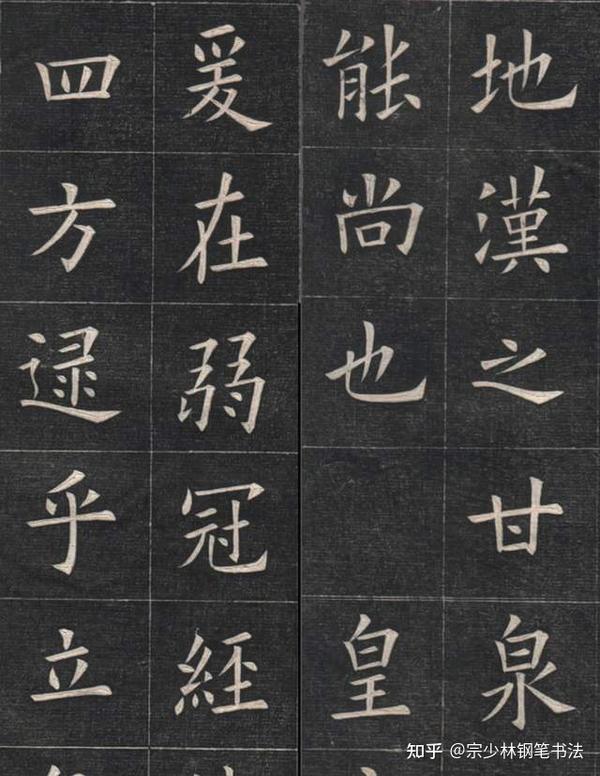 地漢之甘泉
能尚也 皇
爰在弱冠經
四方逮乎立
知乎 @宗少林钢笔书法